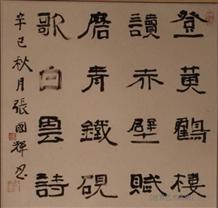 登黃鶴樓
讀赤壁賦
磨青鐵硯
歌白雲詩
辛巳秋月張國輝書